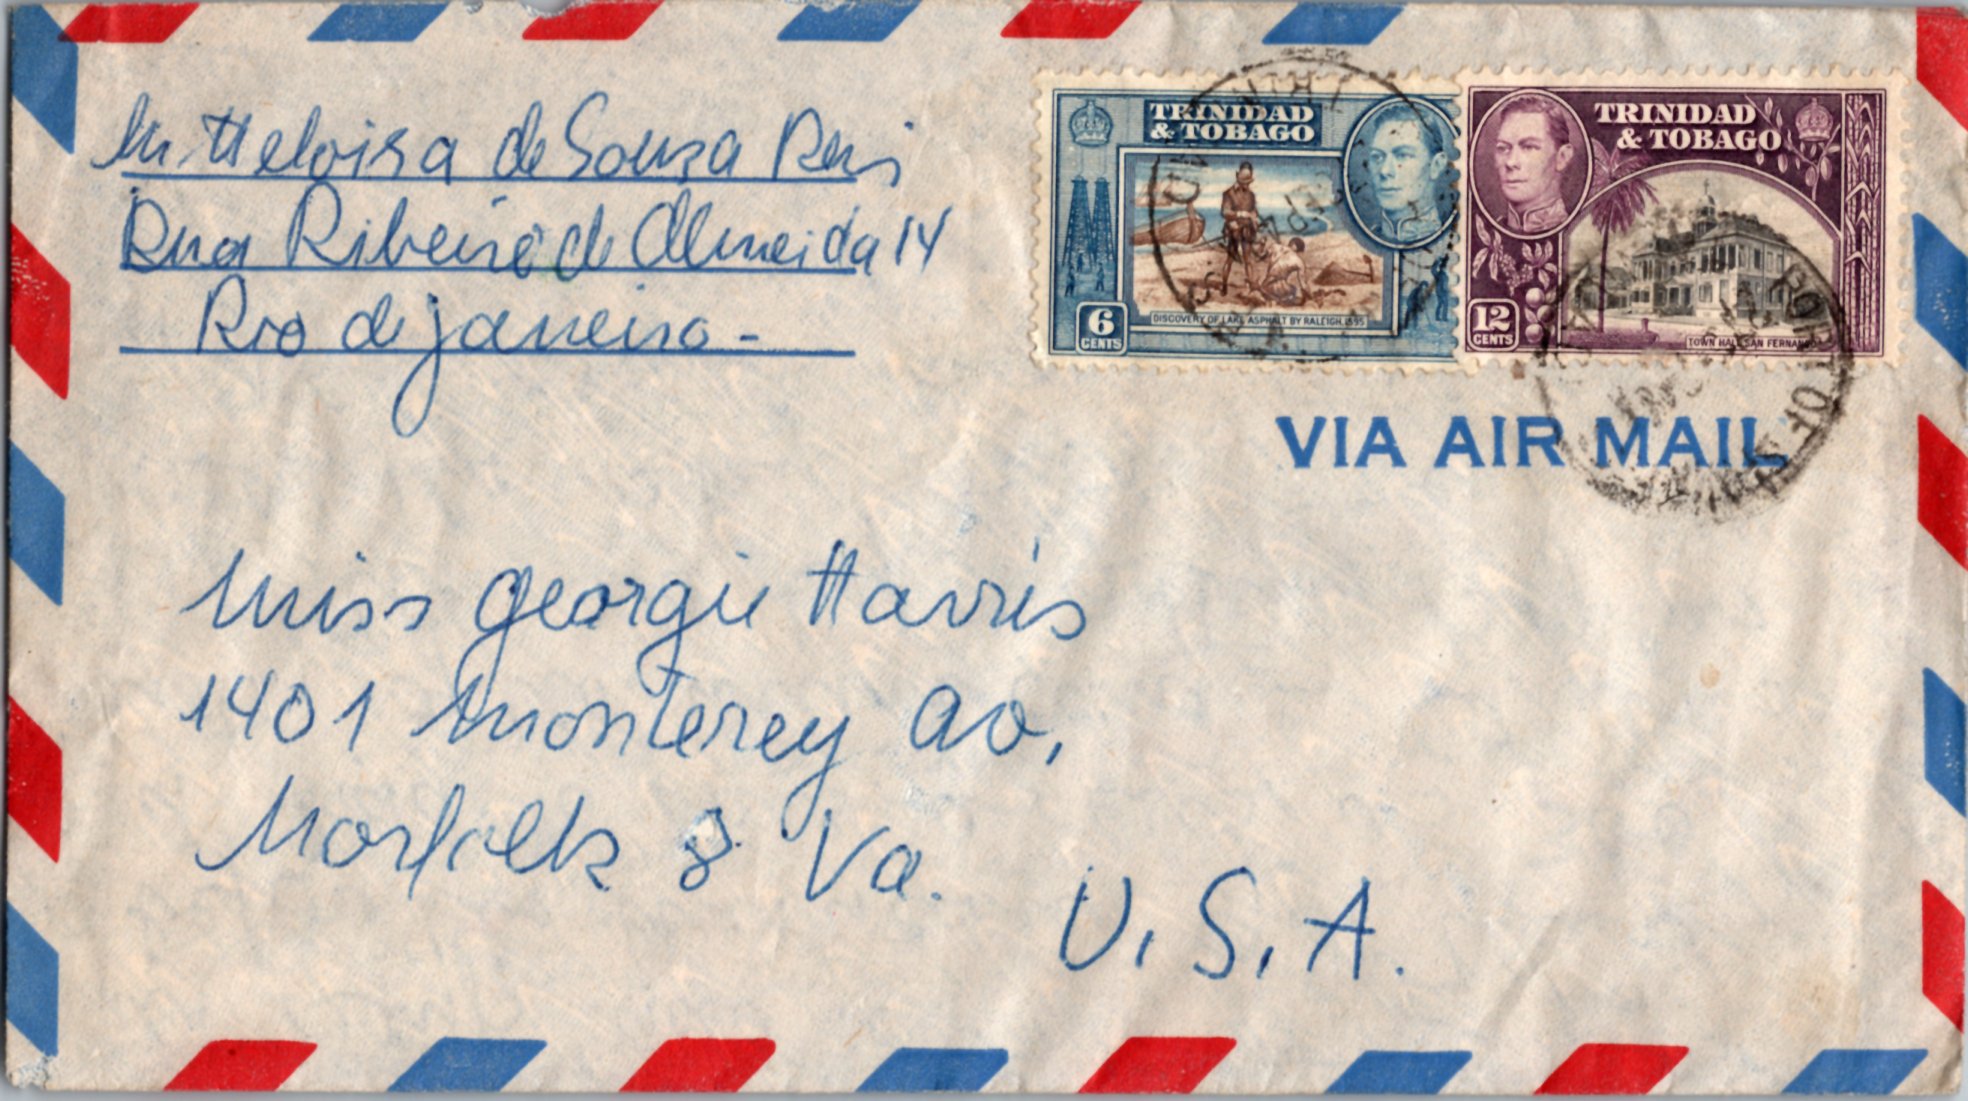 Heloisa de Souza Reis
Rua Ribeiro de Almeida 14
Rio de janeiro -
TRINIDAD
& TOBAGO
6
CENTS
DISCOVERY OF LAKE ASPHALT BY RALEIGH, 1595
TRINIDAD
& TOBAGO
12
CENTS
TOWN HALL SAN FERNANDO
PORT OF
VIA AIR MAIL
Miss Georgie Harris
1401 Monterey Av,
Norfolk 8 Va.
U.S.A.